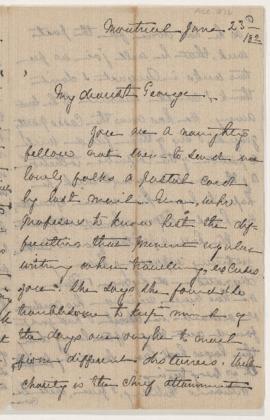 Montreal June 23d
1882
My dearest George.
You are a naughty
fellow not even to send us
lonely folks a postal card
by last mail. Anna, who
professes to know best the dif-
ficulties that prevent regular
writing when travelling, excuses
you. She says she found it so
troublesome to keep in mind
the days one ought to mail
from different distances. But
charity is the chief attainment